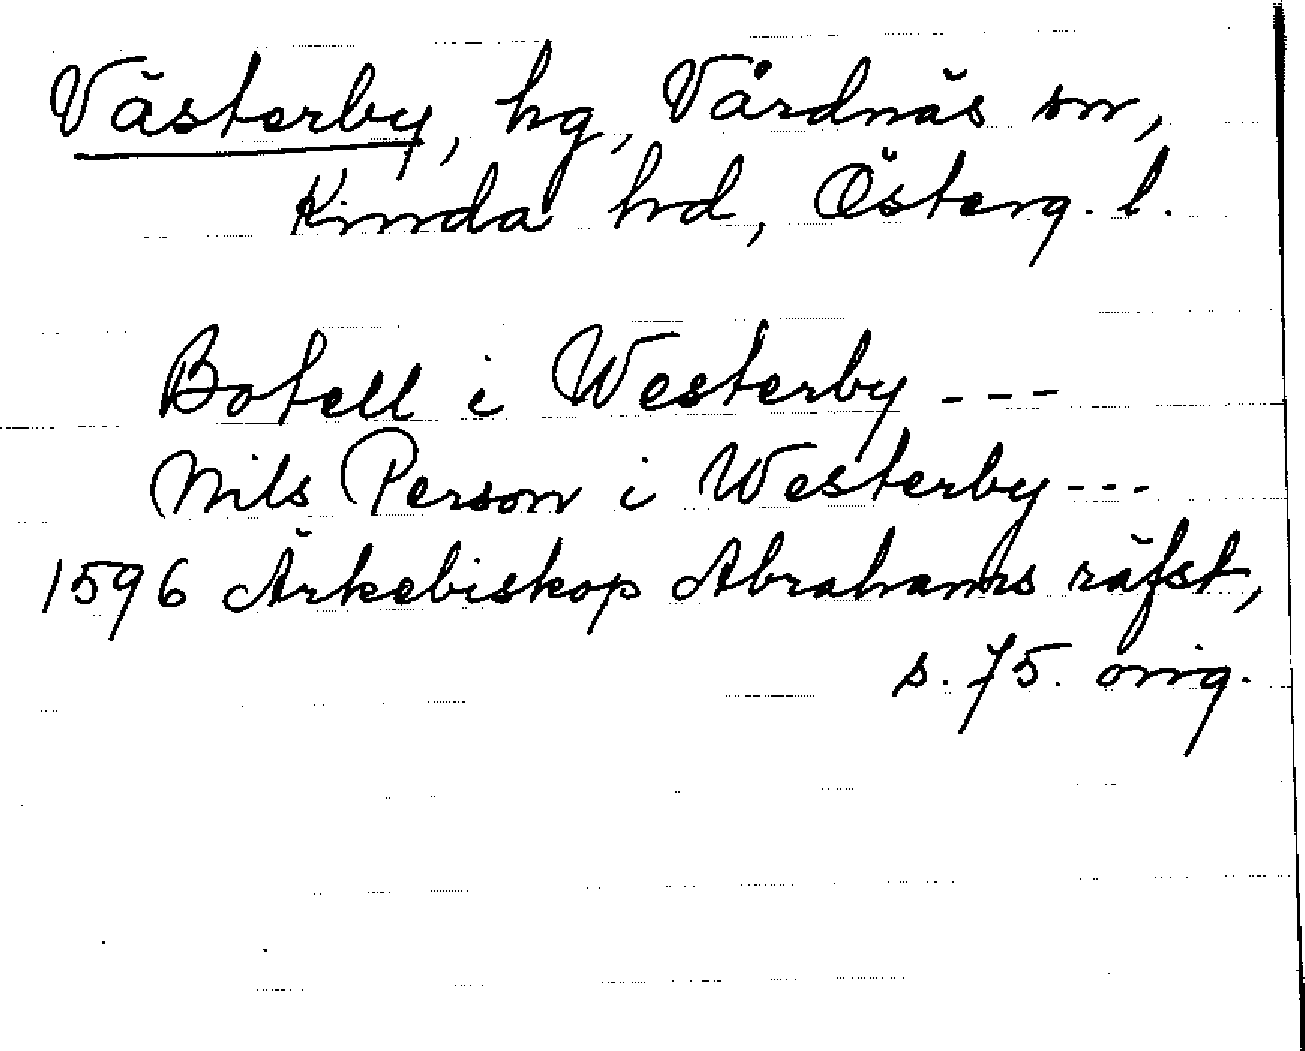 Västerby, hg, Vårdnäs sn,
Kinda hd, Österg. l.
Botell i Westerby ---
Nils Person i Westerby ---
1596 Ärkebiskop Abrahams räfst,
s. 75. orig.